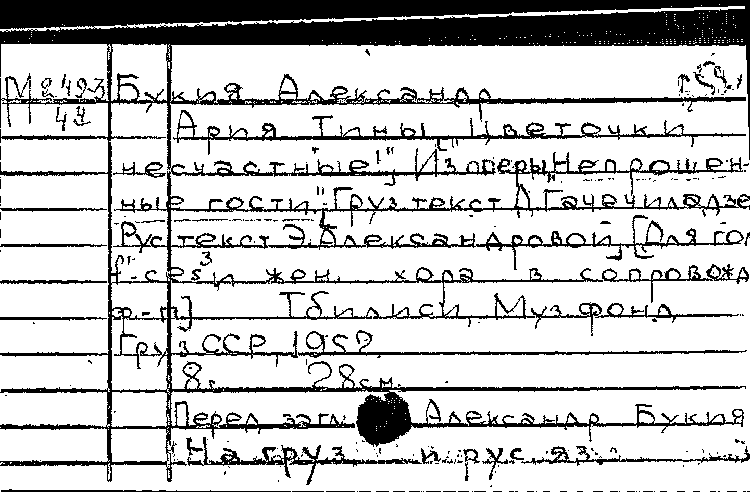 М 2423 Букия, Александр
42 Ария Тины "Цветочки,
несчастные!" [Из оперы "Непрошен-
ные гости". Груз. текст Д. Гачечиладзе
Рус. текст Э. Александровой. [Для гол
и жен. хора в сопровожд
ф-п.] Тбилиси, Музфонд
Груз ССР, 1952.
8с. 28см.
Перед загл. Александр Букия
На груз. и рус. яз.